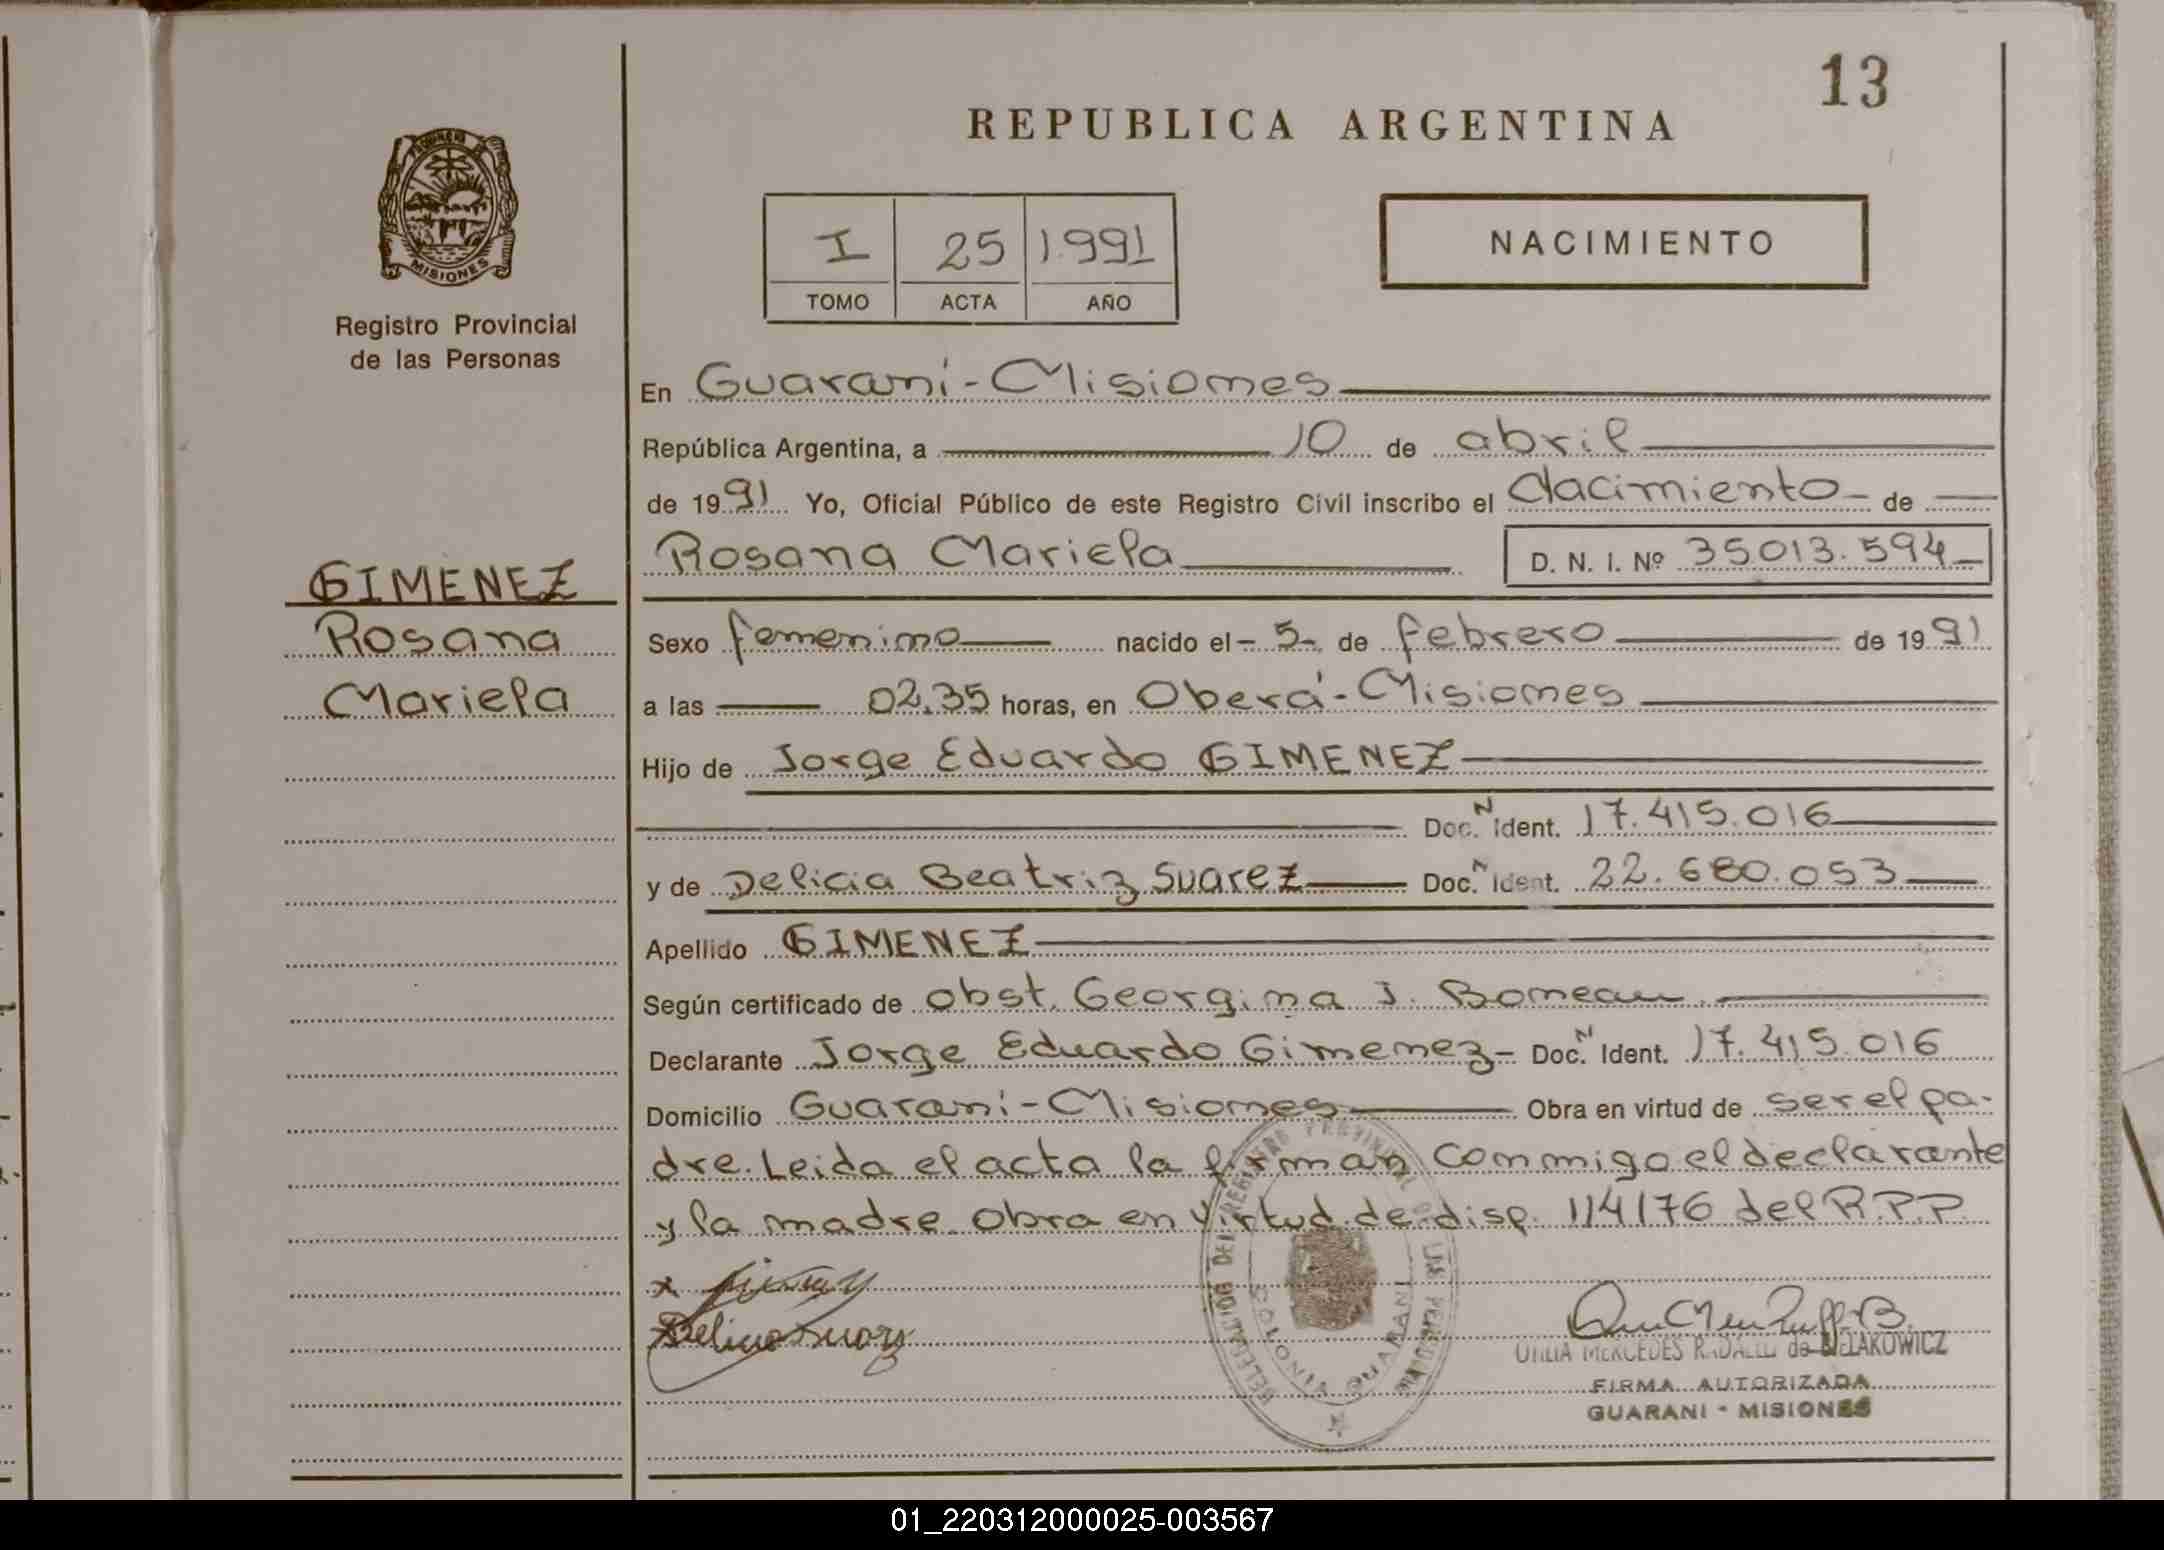 13
REPUBLICA ARGENTINA
MISIONES
Registro Provincial
de las Personas
I 25 1.991
TOMO ACTA AÑO
NACIMIENTO
En Guaraní - Misiones
República Argentina, a 10 de abril
de 1991 Yo, Oficial Público de este Registro Civil inscribo el Nacimiento de
Rosana Mariela D. N. I. Nº 35.013.594
GIMENEZ
Rosana
Mariela
Sexo femenino nacido el - 5 - de febrero de 1991
a las 02,35 horas, en Oberá - Misiones
Hijo de Jorge Eduardo GIMENEZ
Doc. N Ident. 17.415.016
y de Delicia Beatriz Suarez Doc. N Ident. 22.680.053
Apellido GIMENEZ
Según certificado de obst. Georgina J. Boneau
Declarante Jorge Eduardo Gimenez - Doc. N Ident. 17.415.016
Domicilio Guaraní - Misiones Obra en virtud de ser el pa-
dre. Leida el acta la firman conmigo el declarante
y la madre. Obra en virtud de disp. 114/76 del R.P.P
x
DELEGACION DEL REGISTRO PROVINCIAL DE LAS PERSONAS
COLONIA GUARANI
MERCEDES de BIELAKOWICZ
FIRMA AUTORIZADA
GUARANI - MISIONES
01_220312000025-003567